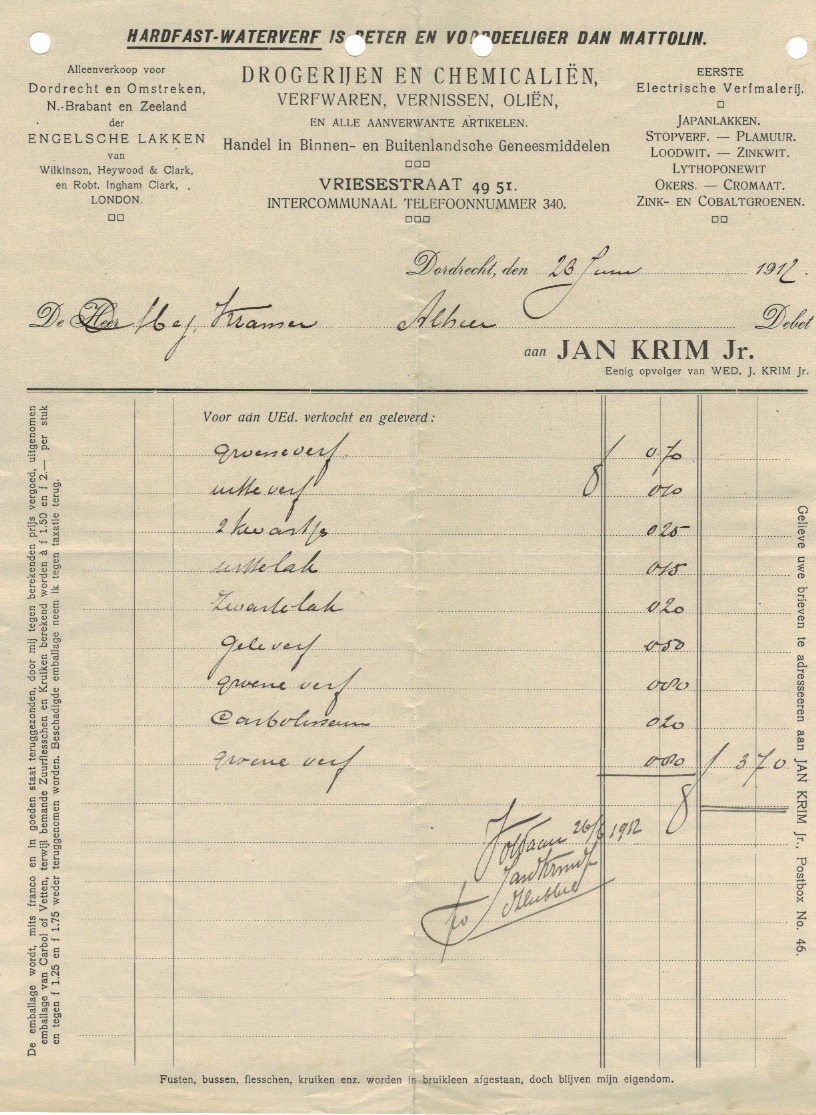 HARDFAST-WATERVERF IS BETER EN VOORDEELIGER DAN MATTOLIN.
Alleenverkoop voor
Dordrecht en Omstreken,
N.-Brabant en Zeeland
der
ENGELSCHE LAKKEN
van
Wilkinson, Heywood & Clark,
en Robt. Ingham Clark,
LONDON.
DROGERIJEN EN CHEMICALIËN,
VERFWAREN, VERNISSEN, OLIËN,
EN ALLE AANVERWANTE ARTIKELEN.
Handel in Binnen- en Buitenlandsche Geneesmiddelen
VRIESESTRAAT 49 51.
INTERCOMMUNAAL TELEFOONNUMMER 340.
EERSTE
Electrische Verfmalerij.
JAPANLAKKEN.
STOPVERF. — PLAMUUR.
LOODWIT. — ZINKWIT.
LYTHOPONEWIT
OKERS. — CROMAAT.
ZINK- EN COBALTGROENEN.
Dordrecht, den 23 Juni 1912.
De Heer Mej. Kramer Alhier Debet
aan JAN KRIM Jr.
Eenig opvolger van WED. J. KRIM Jr.
Voor aan UEd. verkocht en geleverd:
groene verf f 0 70
witte verf 0 10
2 kwastjes 0 25
witte lak 0 15
Zwarte lak 0 20
gele verf 0 50
groene verf 0 80
Carbolineum 0 20
groene verf 0 80 f 3 70
Voldaan 26/6 1912
Jan Krim Jr
po
De emballage wordt, mits franco en in goeden staat teruggezonden, door mij tegen berekenden prijs vergoed, uitgenomen
emballage van Carbol of Vetten, terwijl bemande Zuurflesschen en Kruiken berekend worden à f 1.50 en f 2.— per stuk
en tegen f 1.25 en f 1.75 weder teruggenomen worden. Beschadigde emballage neem ik tegen taxatie terug.
Gelieve uwe brieven te adresseeren aan JAN KRIM Jr., Postbox No. 46.
Fusten, bussen, flesschen, kruiken enz. worden in bruikleen afgestaan, doch blijven mijn eigendom.